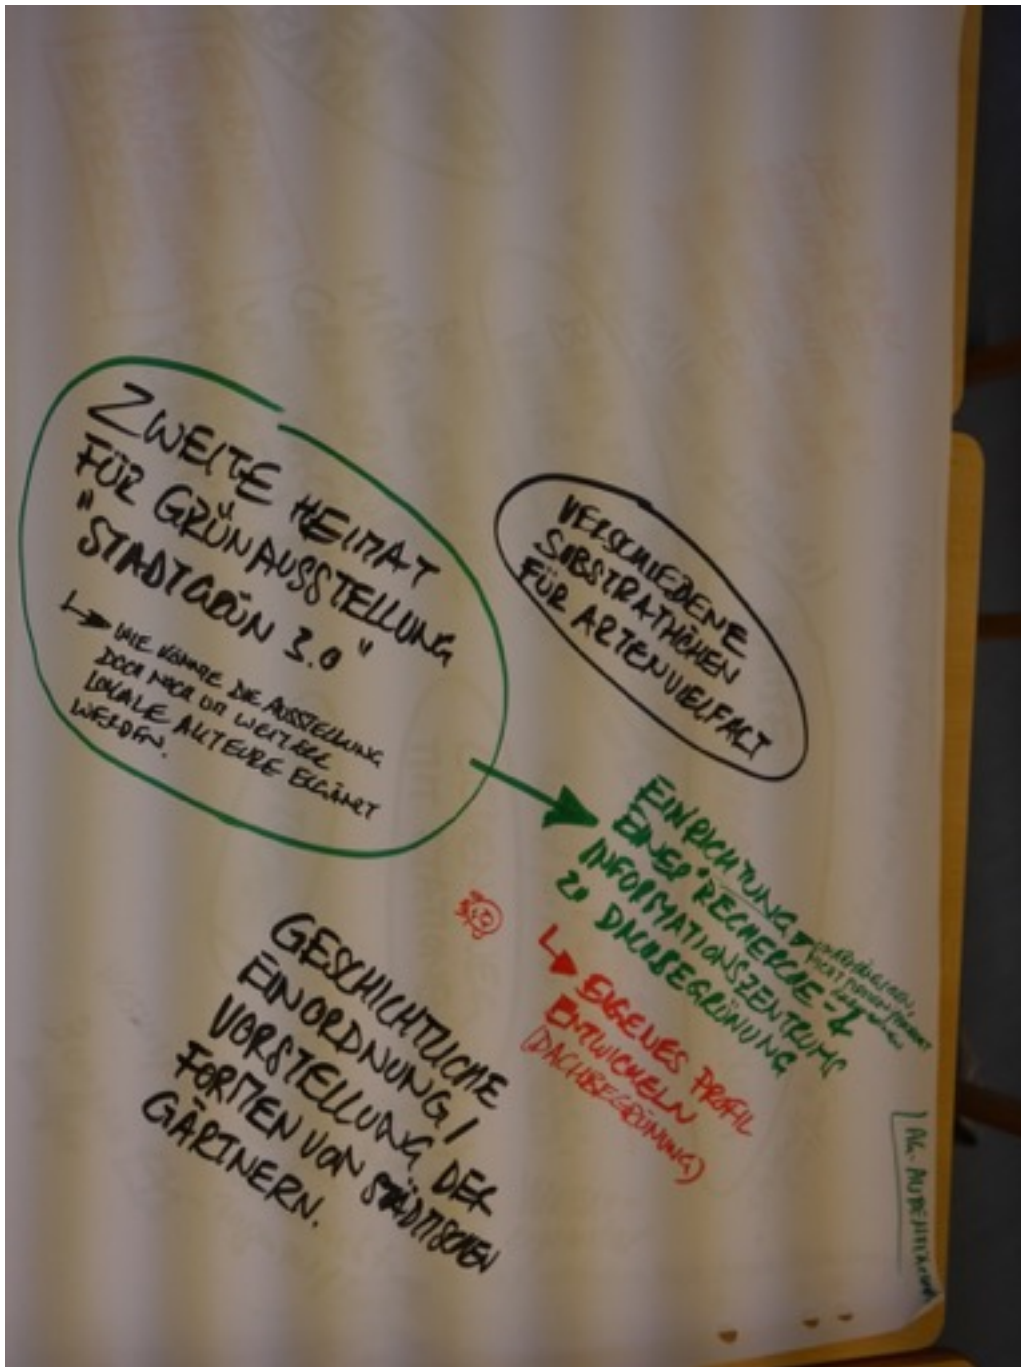 ZWEITE HEIMAT
FÜR GRÜNAUSSTELLUNG
"STADTGRÜN 3.0"
WIE KÖNNTE DIE AUSSTELLUNG
DOCH NOCH UM WEITERE
LOKALE AKTEURE ERGÄNZT
WERDEN.
VERSCHIEDENE
SUBSTRATHÖHEN
FÜR ARTENVIELFALT
EINRICHTUNG
EINES "RECHERCHE- &
INFORMATIONSZENTRUMS
ZU DACHBEGRÜNUNG
EIGENES PROFIL
ENTWICKELN
(DACHBEGRÜNUNG)
GESCHICHTLICHE
EINORDNUNG /
VORSTELLUNG DER
FORMEN VON STÄDTISCHEN
GÄRTNERN.